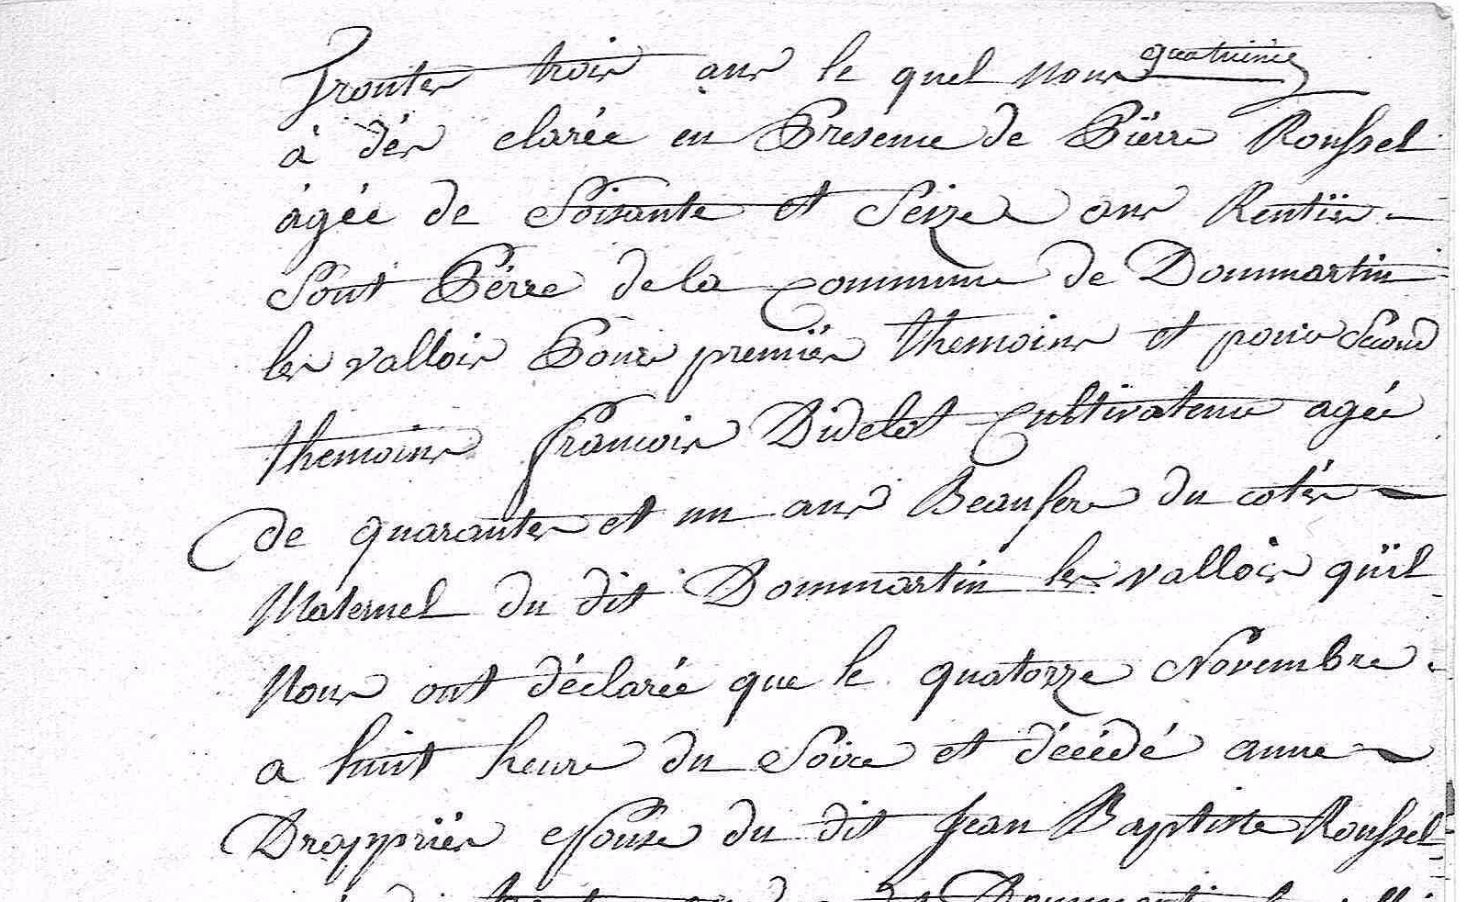 Trentes trois ans le quel nous quatrieme
à dés clarée en Presence de Pïerre Roussel
ágée de Soisante et Seize ans Rentïer
Sont Pérre de la Commune de Dommartin
les vallois Pour premïer themoins et pour Second
themoins francois Didelot Cultivateur agée
de quarantes et un ans Beaufere du cotés
Maternel du dit Dommartin les vallois quïl
Nous ont déclarée que le quatorze Novembre
a huit heure du Soire et décédé anne
Drappriér Epouse du dit Jean Baptiste Roussel